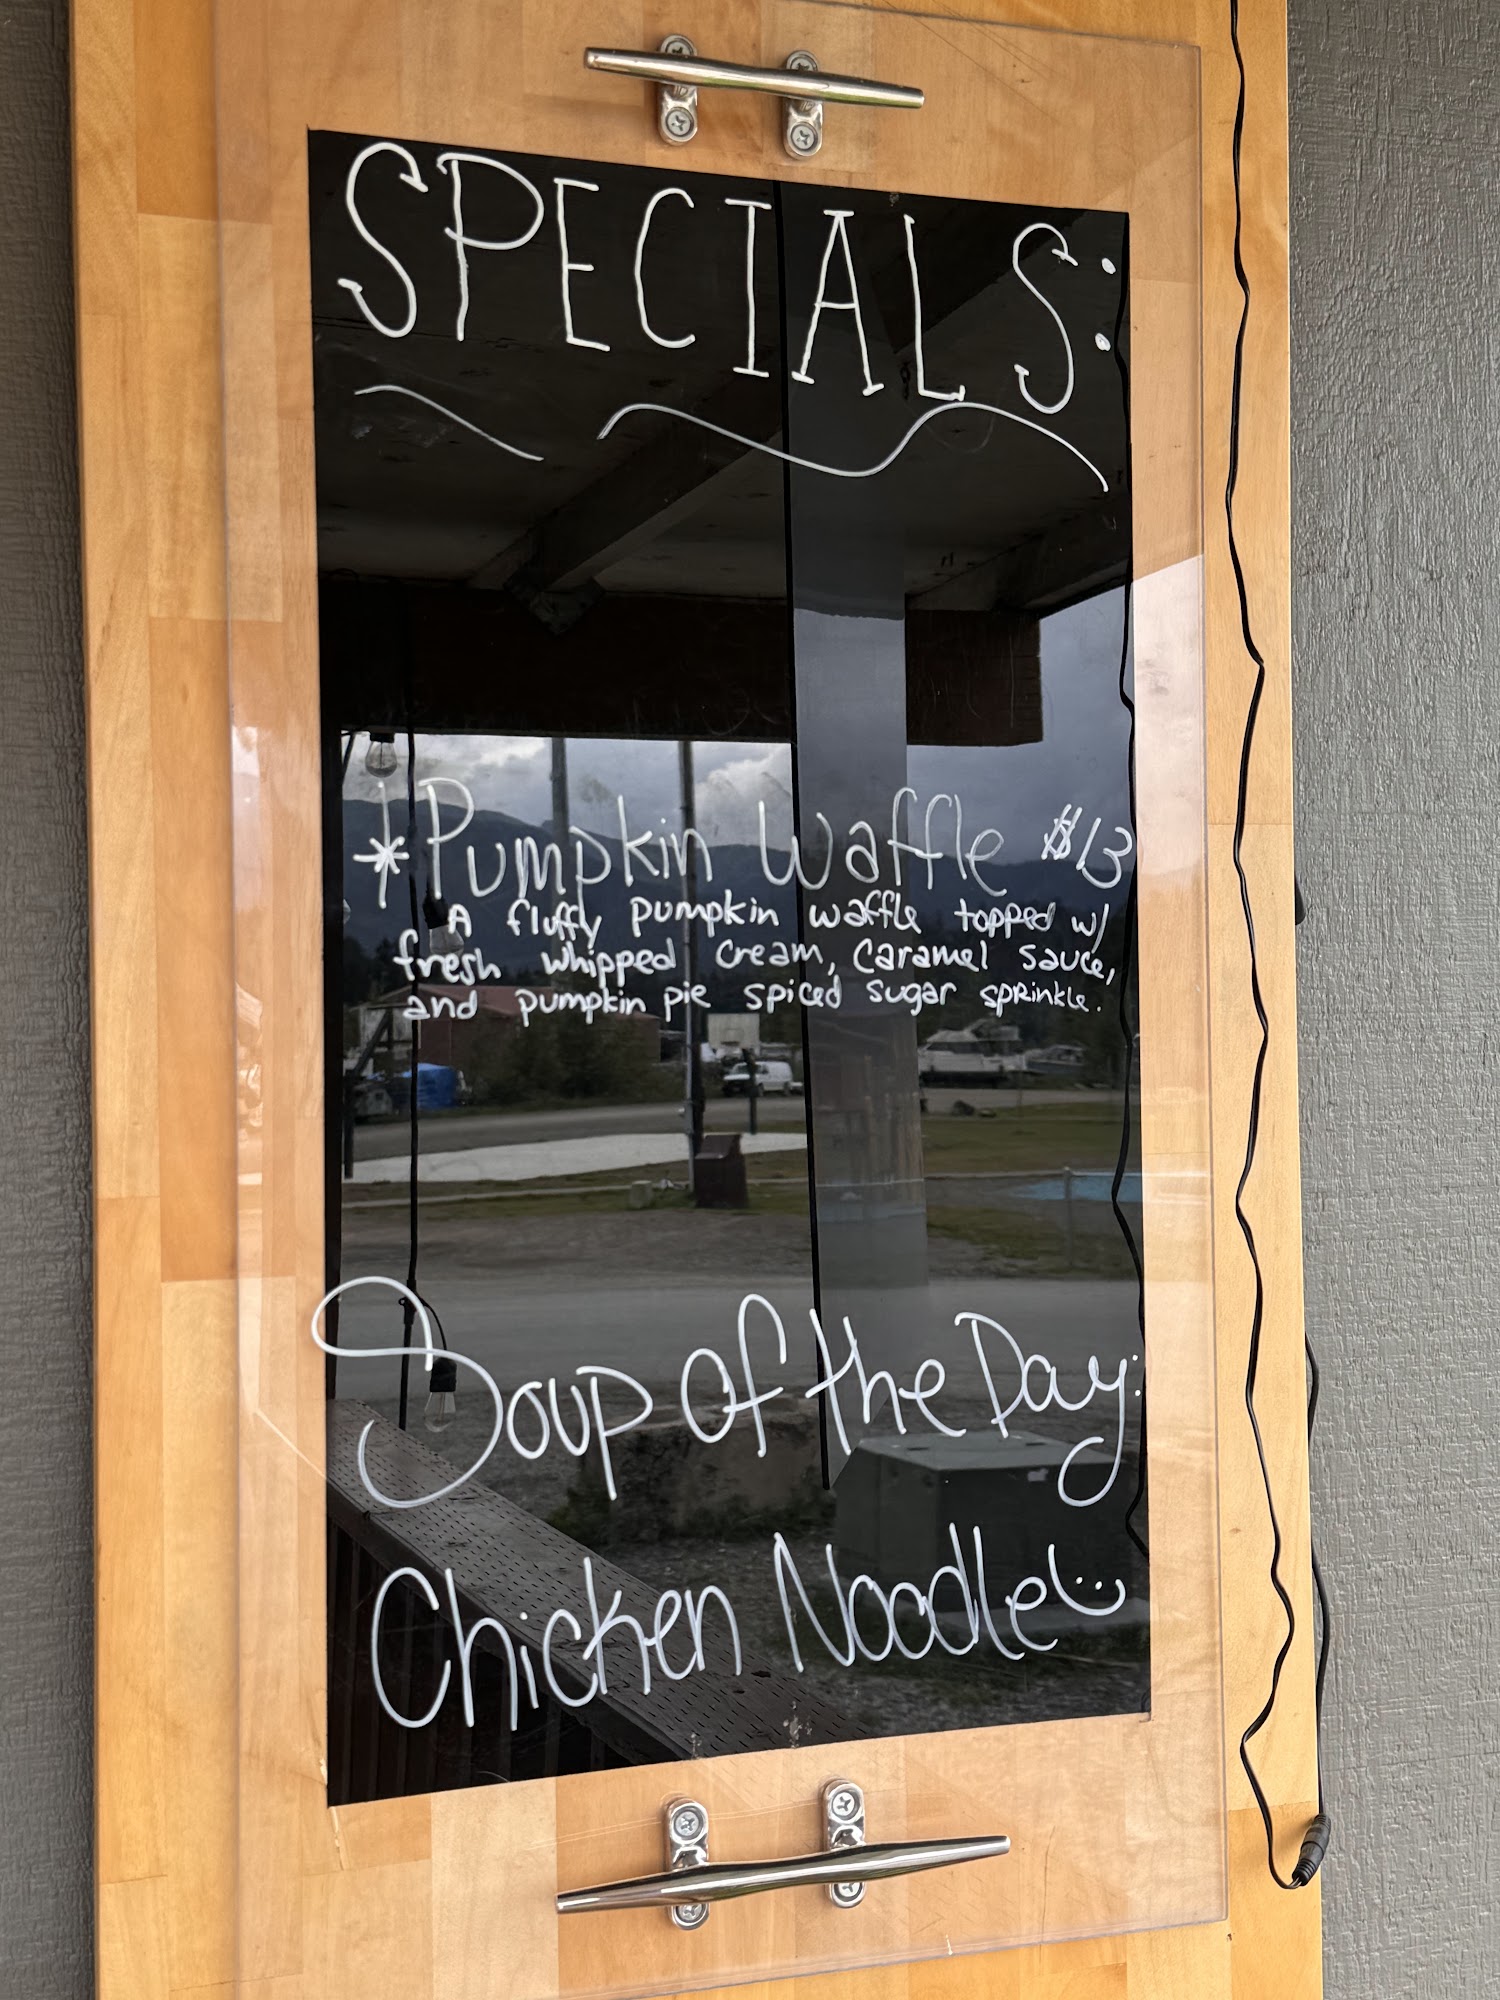 SPECIALS:
*Pumpkin Waffle $13
A fluffy pumpkin waffle topped w/
fresh whipped cream, caramel sauce,
and pumpkin pie spiced sugar sprinkle.
Soup of the Day:
Chicken Noodle